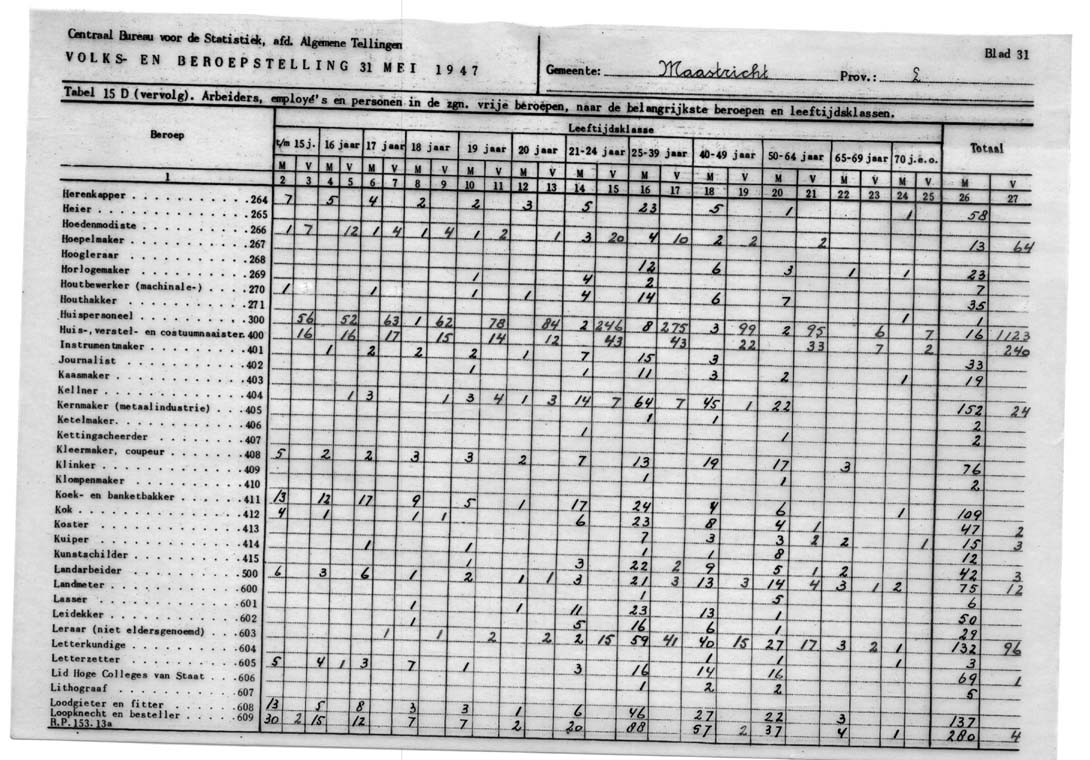 Centraal Bureau voor de Statistiek, afd. Algemene Tellingen
VOLKS- EN BEROEPSTELLING 31 MEI 1947
Gemeente: Maastricht Prov.: L
Blad 31
Tabel 15 D (vervolg). Arbeiders, employé's en personen in de zgn. vrije beroepen, naar de belangrijkste beroepen en leeftijdsklassen.
Beroep Leeftijdsklasse Totaal
t/m 15 j. 16 jaar 17 jaar 18 jaar 19 jaar 20 jaar 21-24 jaar 25-39 jaar 40-49 jaar 50-64 jaar 65-69 jaar 70 j.e.o.
M V M V M V M V M V M V M V M V M V M V M V M V M V
1 2 3 4 5 6 7 8 9 10 11 12 13 14 15 16 17 18 19 20 21 22 23 24 25 26 27
Herenkapper 264 7 5 4 2 2 3 5 23 5 1 1 58
Heier 265
Hoedenmodiste 266 1 7 12 1 4 1 4 1 2 1 3 20 4 10 2 2 2 13 64
Hoepelmaker 267
Hoogleraar 268 12 6 3 1 1 23
Horlogemaker 269 1 4 2 7
Houtbewerker (machinale-) 270 1 1 1 1 4 14 6 7 35
Houthakker 271 1 1
Huispersoneel 300 56 52 63 1 62 78 84 2 246 8 275 3 99 2 95 6 7 16 1123
Huis-, verstel- en costuumnaaister. 400 16 16 17 15 14 12 43 43 22 33 7 2 240
Instrumentmaker 401 1 2 2 2 1 7 15 3 33
Journalist 402 1 1 11 3 2 1 19
Kaasmaker 403
Kellner 404 1 3 1 3 4 1 3 14 7 64 7 45 1 22 152 24
Kernmaker (metaalindustrie) 405 1 1 2
Ketelmaker. 406 1 1 2
Kettingscheerder 407
Kleermaker, coupeur 408 5 2 2 3 3 2 7 13 19 17 3 76
Klinker 409 1 1 2
Klompenmaker 410
Koek- en banketbakker 411 13 12 17 9 5 1 17 24 4 6 1 109
Kok 412 4 1 1 1 6 23 8 4 1 47 2
Koster 413 7 3 3 2 2 1 15 3
Kuiper 414 1 1 1 1 8 12
Kunstschilder 415 1 3 22 2 9 5 1 2 42 3
Landarbeider 500 6 3 6 1 2 1 1 3 21 3 13 3 14 4 3 1 2 75 12
Landmeter 600 1 5 6
Lasser 601 1 1 11 23 13 1 50
Leidekker 602 1 5 16 6 1 29
Leraar (niet eldersgenoemd) 603 1 1 2 2 2 15 59 41 40 15 27 17 3 2 1 132 96
Letterkundige 604 1 1 1 3
Letterzetter 605 5 4 1 3 7 1 3 16 14 16 69 1
Lid Hoge Colleges van Staat 606 1 2 2 5
Lithograaf 607
Loodgieter en fitter 608 13 5 8 3 3 1 6 46 27 22 3 137
Loopknecht en besteller 609 30 2 15 12 7 7 2 20 88 57 2 37 4 1 280 4
R.P. 153. 13a